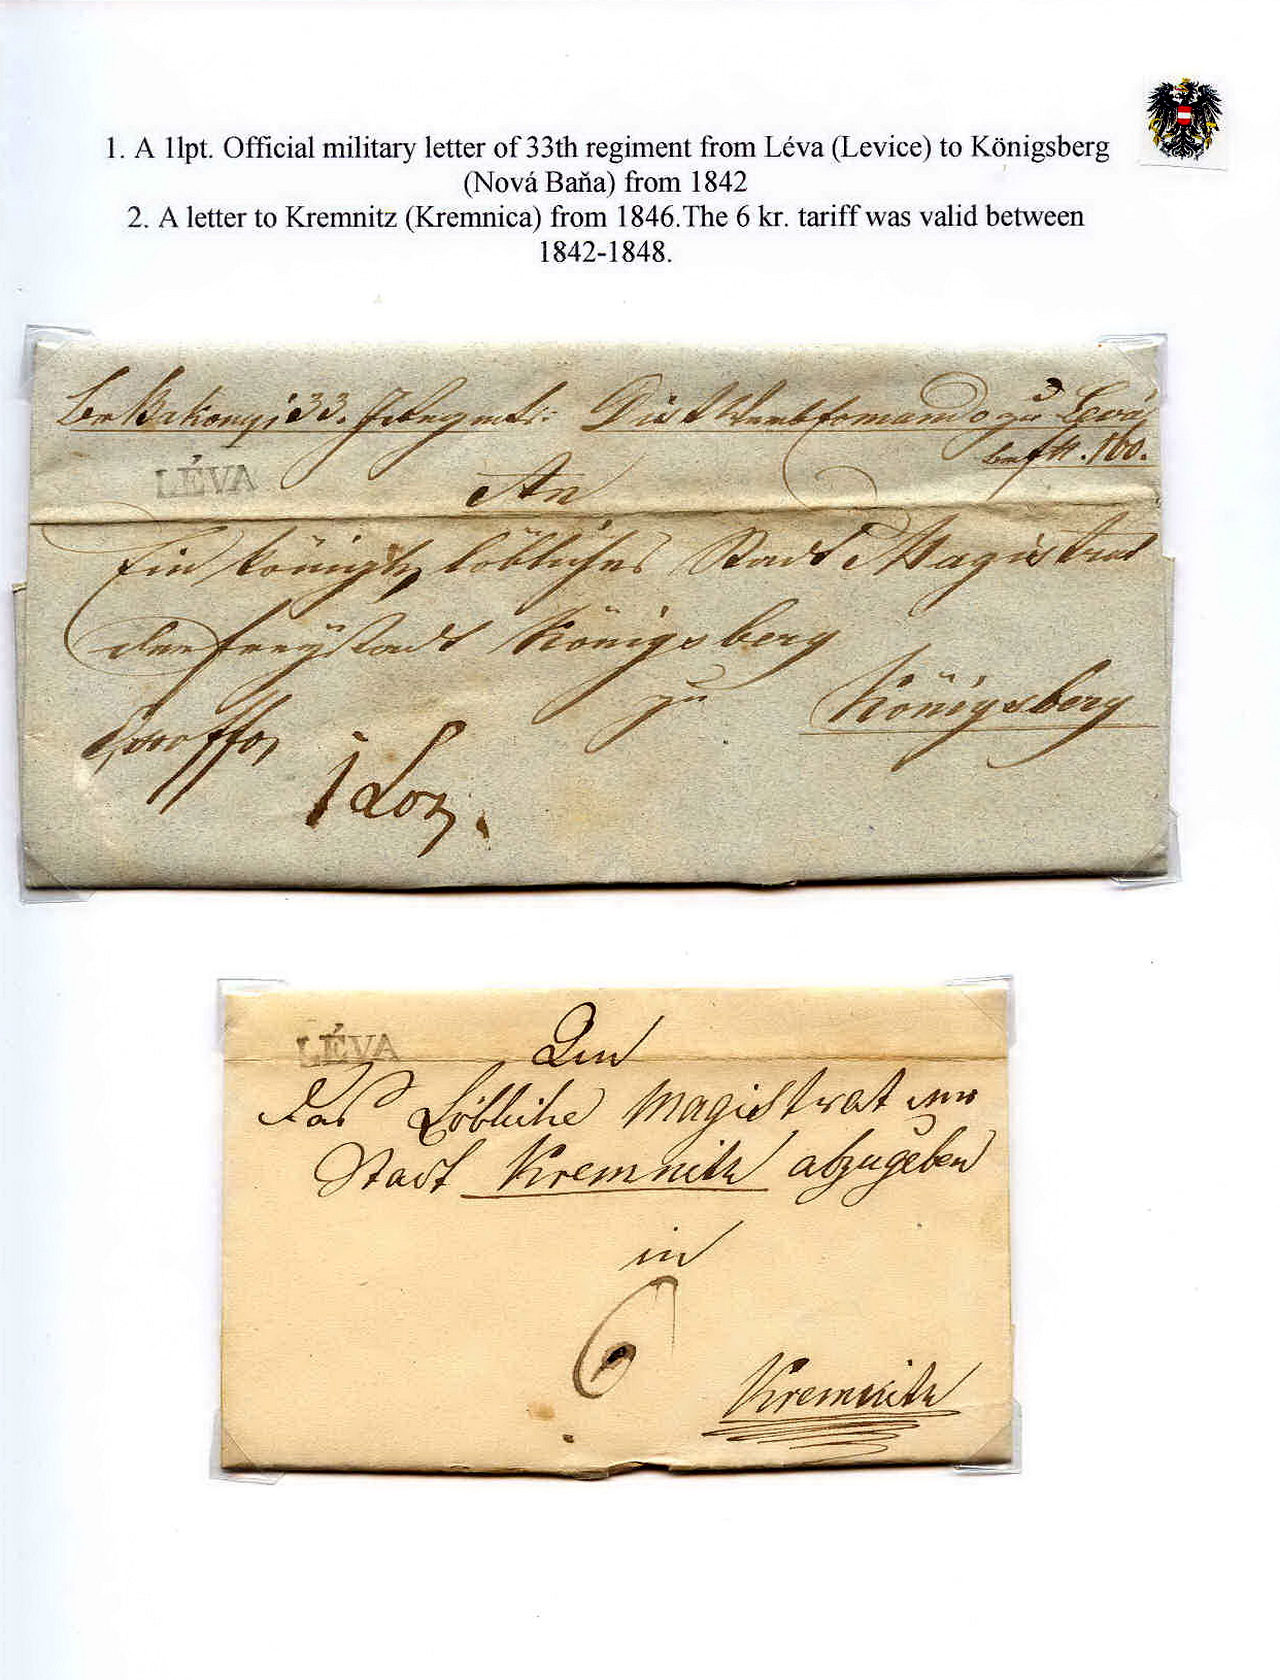 1. A 1lpt. Official military letter of 33th regiment from Léva (Levice) to Königsberg
(Nová Baňa) from 1842
2. A letter to Kremnitz (Kremnica) from 1846.The 6 kr. tariff was valid between
1842-1848.
Bakonyi 33. zu Leva
No. 160.
LÉVA
An
Ein königl. löbliches Stadt Magistrat
der freystadt Königsberg
zu Königsberg
1 Loth.
LÉVA
An
das Löbliche Magistrat der
Stadt Kremnitz abzugeben
in
6
Kremnitz